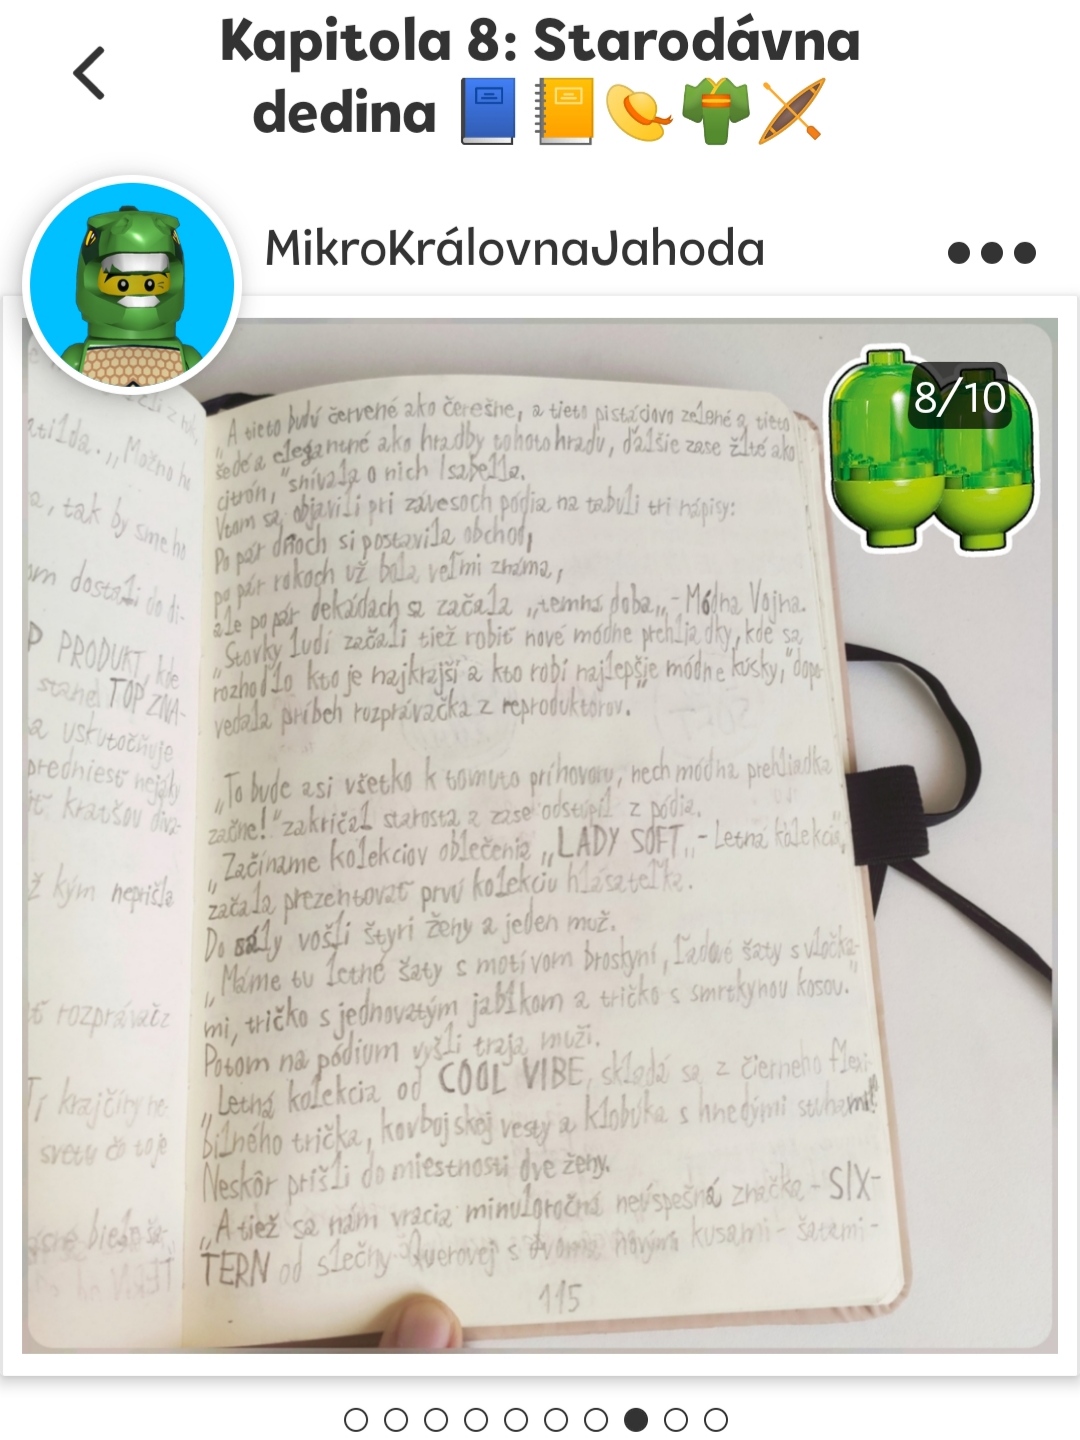 Kapitola 8: Starodávna
dedina
MikroKrálovnaJahoda
8/10
atilda. „Možno
a, tak by sme ho
om dostali do di-
P PRODUKT, kde
stane TOP ZNA-
a uskutočňuje
predniesť nejaký
kratšou
ž kým neprišla
ť rozprávač
krajčíry ne-
svetu čo to je
„A tieto budú červené ako čerešne, a tieto pistáciovo zelené a tieto
šedé a elegantné ako hradby tohoto hradu, ďalšie zase žlté ako
citrón," snívala o nich Isabella.
Vtom sa objavili pri závesoch pódia na tabuli tri nápisy:
Po pár dňoch si postavila obchod,
po pár rokoch už bola veľmi známa,
ale po pár dekádach sa začala „temná doba„ - Módna Vojna.
„Stovky ludí začali tiež robiť nové módne prehliadky, kde sa
rozhodlo kto je najkrajší a kto robí najlepšie módne kúsky," dopo-
vedala príbeh rozprávačka z reproduktorov.
„To bude asi všetko k tomuto príhovoru, nech módna prehliadka
začne!" zakričal starosta a zase odstúpil z pódia.
„Začíname kolekciov oblečenia „LADY SOFT„ - Letná kolekcia,"
začala prezentovať prvú kolekciu hlásateľka.
Do sály vošli štyri ženy a jeden muž.
„Máme tu letné šaty s motívom broskyní, ľadové šaty s vločka-
mi, tričko s jednovatým jablkom a tričko s smrtkynou kosou."
Potom na pódium vyšli traja muži.
„Letná kolekcia od COOL VIBE, skladá sa z čierneho flexi-
bilného trička, kovbojskej vesty a klobúka s hnedými stuhami!"
Neskôr prišli do miestnosti dve ženy.
„A tiež sa nám vracia minuloročná neúspešná značka - SIX-
TERN od slečny Querovej s dvoma novými kusami - šatami -
115